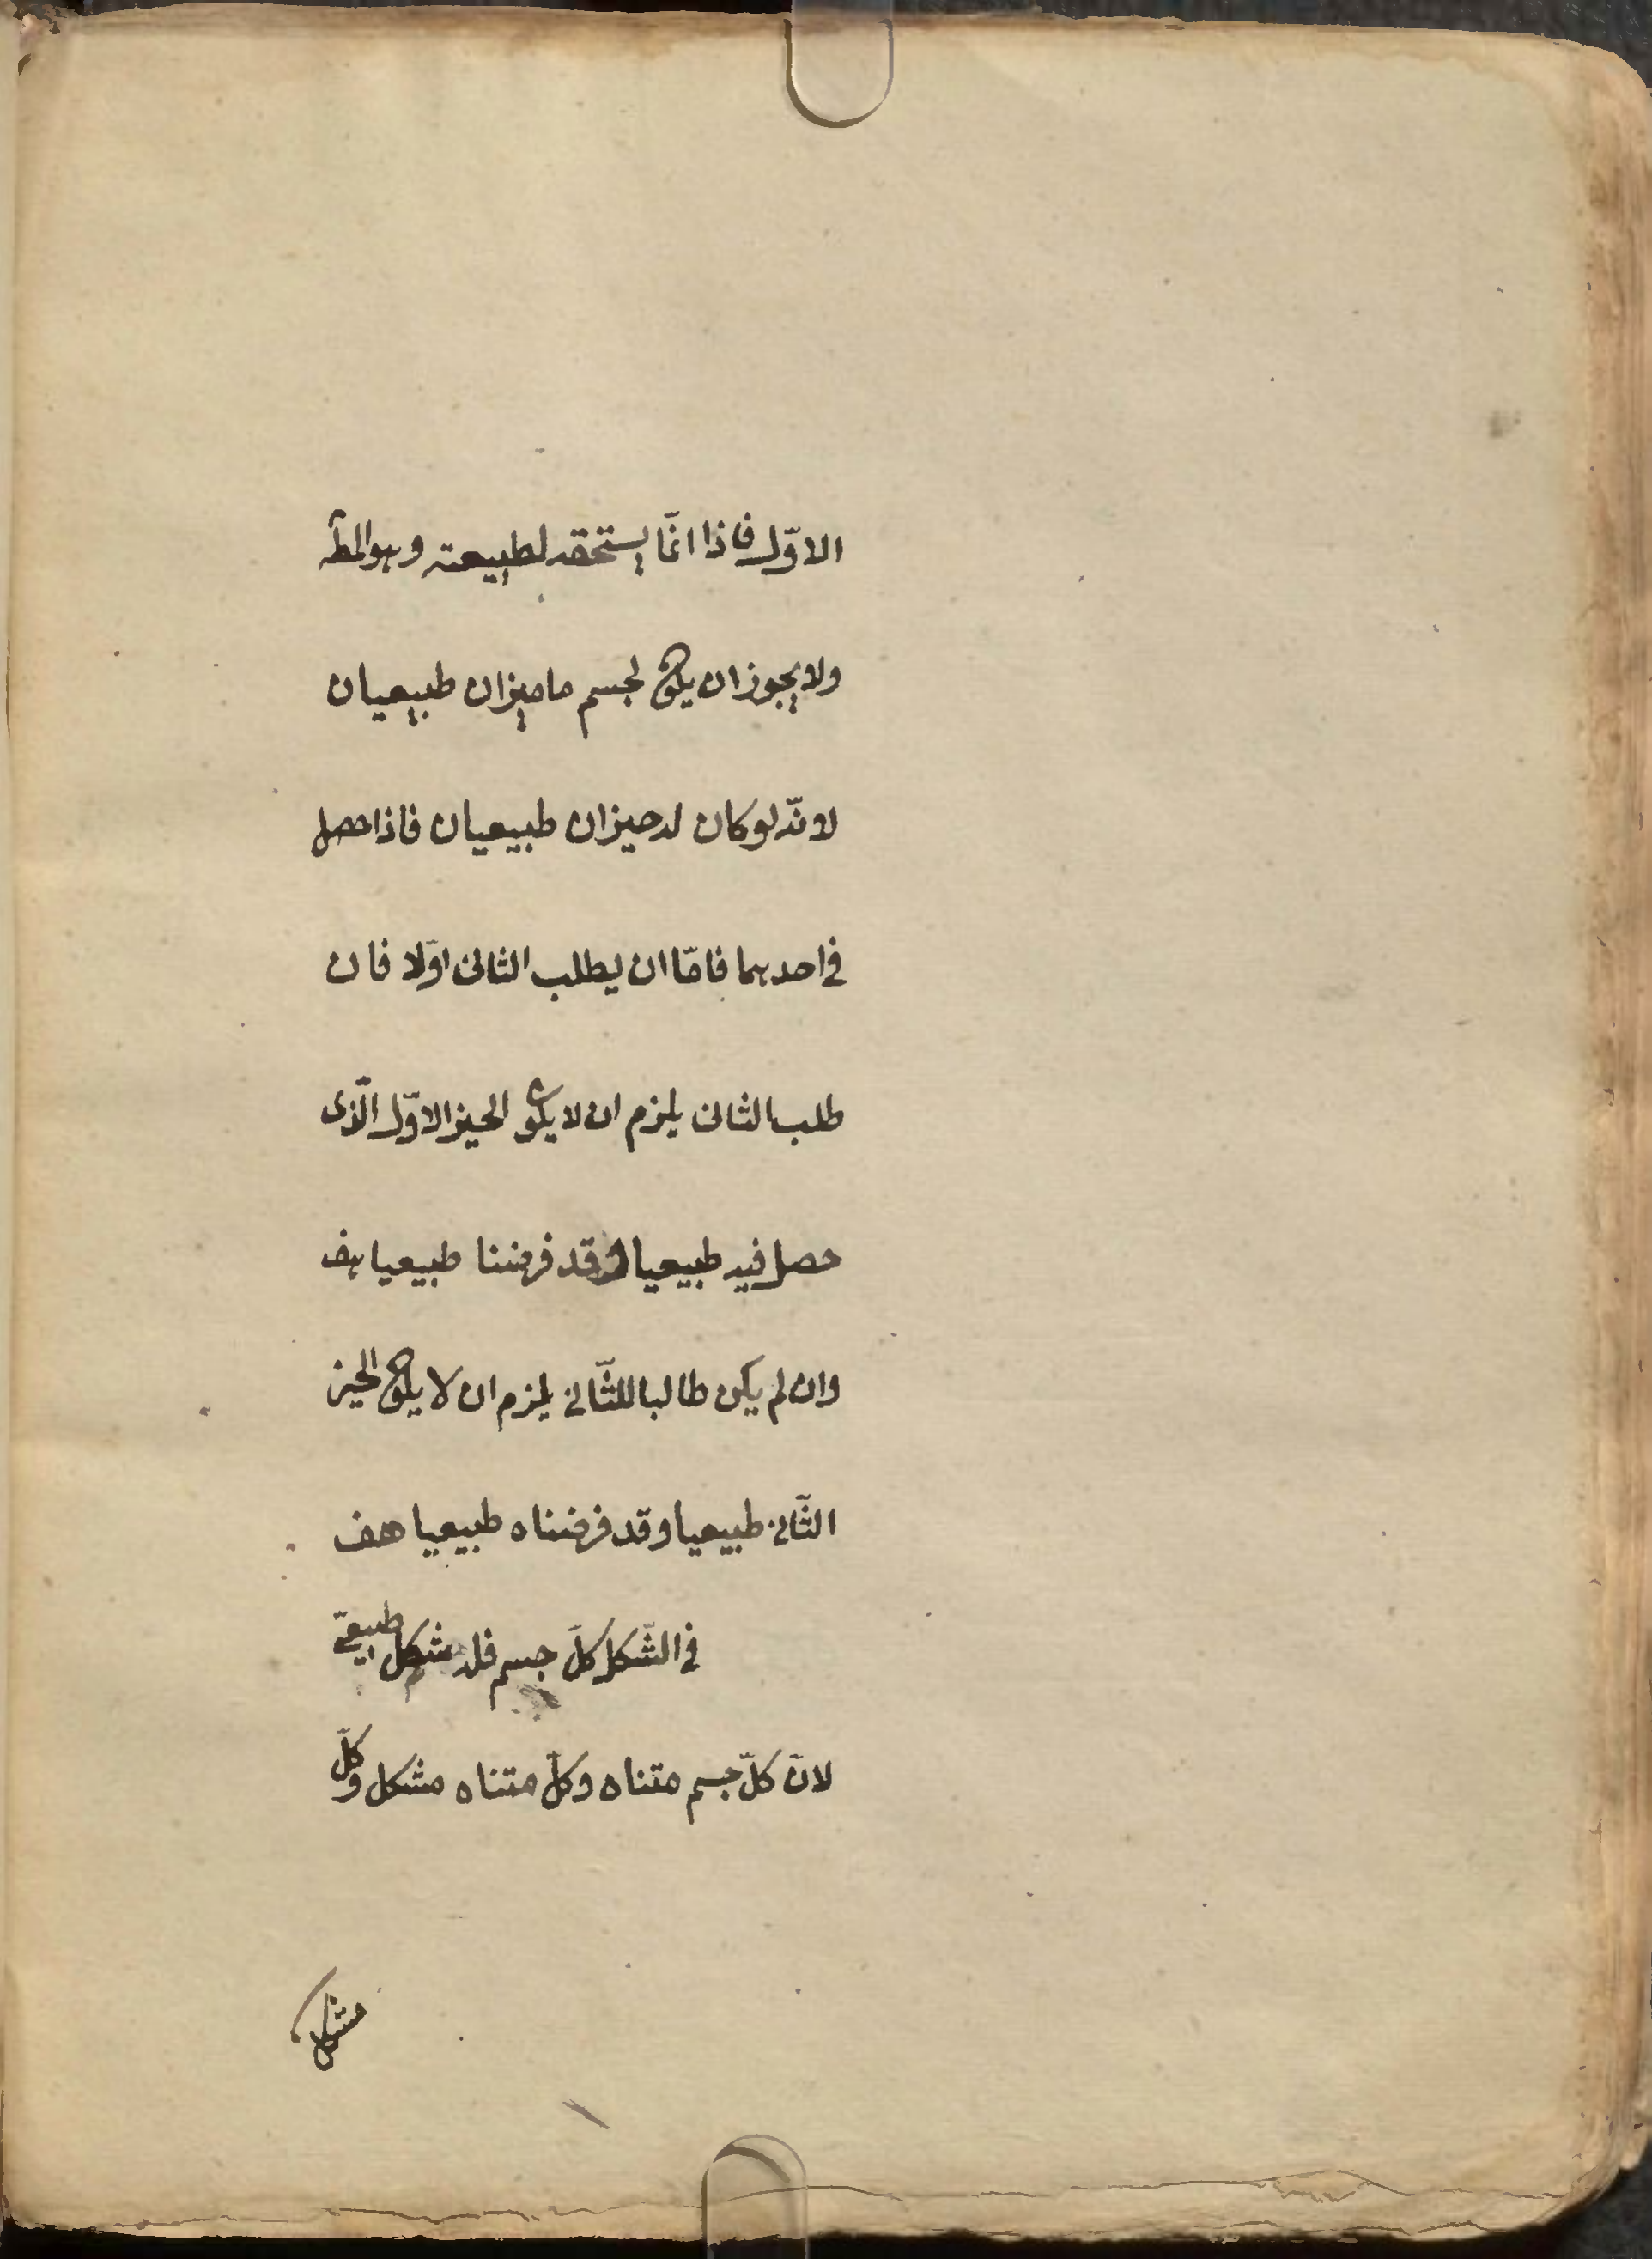 الاوّل فاذا انّما يستحقه لطبيعته وهو المط
ولا يجوز ان يكون لجسم ما حيزان طبيعيان
لانّه لو كان له حيزان طبيعيان فاذا حصل
فى احدهما فامّا ان يطلب الثانى اوّلا فان
طلب الثانى يلزم ان لا يكون الحيز الاوّل الّذى
حصل فيه طبيعيا وقد فرضنا طبيعيا هف
وان لم يكن طالبا للثّانى يلزم ان لا يكون الحيز
الثّانى طبيعيا وقد فرضناه طبيعيا هف
فى الشّكل كلّ جسم فله شكل طبيعىّ
لانّ كلّ جسم متناه وكلّ متناه مشكل وكلّ
مشكل